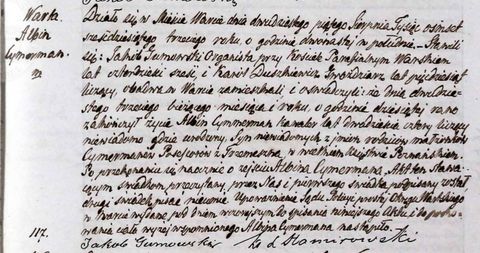 Warka Działo się w Mieście Warce dnia dwudziestego piątego Sierpnia Tysiąc ośmset
Albin sześćdziesiątego trzeciego roku, o godzinie dwunastej w południe. Stawili
Cymerman. się: Jakób Gumowski Organista przy kościele Parafialnym Wareckim
m lat czterdzieści sześć, i Karol Duszkiewicz lat pięćdziesiąt
liczący, obadwa w Warce zamieszkali, i oświadczyli że dnia dwudzie-
stego trzeciego bieżącego miesiąca i roku, o godzinie dziesiątej rano
zakończył życie Albin Cymmerman kawaler lat dwadzieścia cztery liczący
niewiadomo gdzie urodzony, Syn niewiadomych z imion rodziców małżonków
Cymermanów Posesorów z Trzemeszna w wielkim Księstwie Poznańskim.
Po przekonaniu się naocznie o zejściu Albina Cymermana, Akt ten Stawa-
jącym świadkom przeczytany, przez Nas i pierwszego świadka podpisany został
drugi świadek pisać nieumie. Upoważnienie Sądu Policyi prostej Okręgu Wareckiego
w Warce wydane, pod dniem wczorajszym do spisania niniejszego Aktu, i do pocho-
wania ciała wyżej wspomnionego Albina Cymermana nastąpiło.
117. Jakób Gumowski